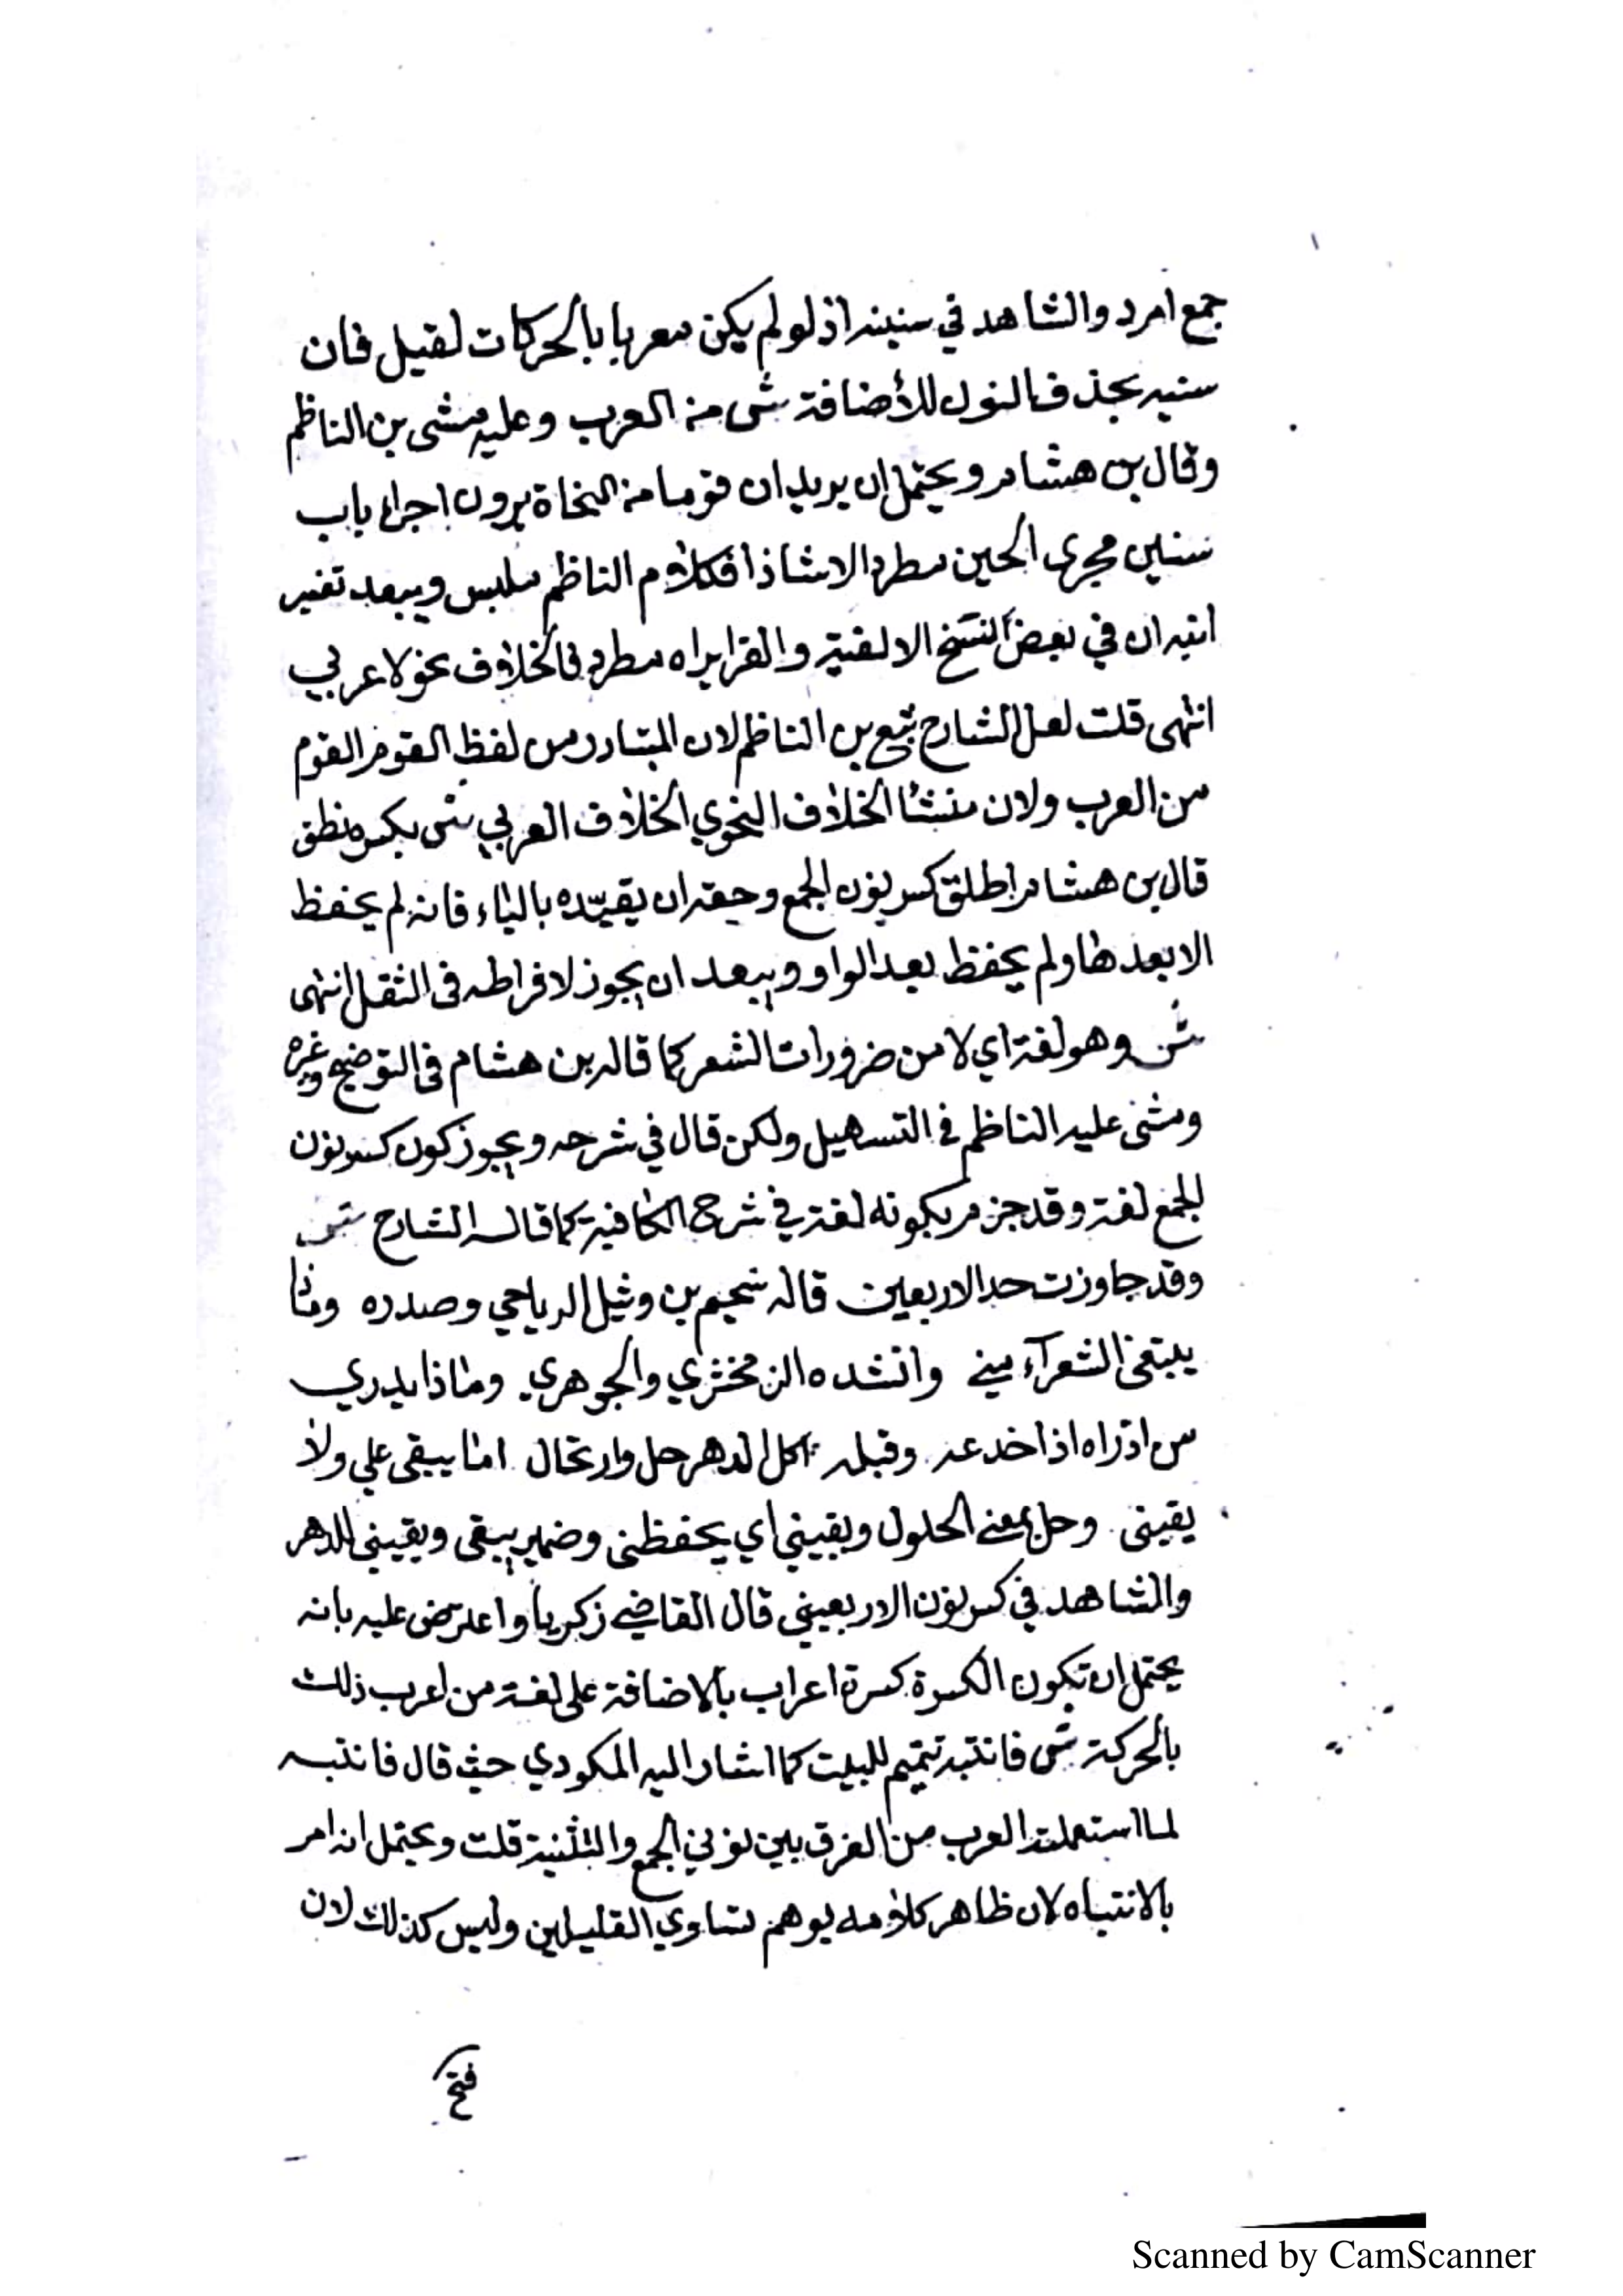 جمع امرد والشاهد في سنينه اذ لو لم يكن معربا بالحركات لقيل فان
سنيه بحذف النون للأضافة ش من العرب وعليه مشى بن الناظم
وقال بن هشام ويحتمل ان يريد ان قوما من النحاة يرون اجراء باب
سنين مجرى الحين مطردا لا شاذا فكلام الناظم ملبس ويبعد تفسير
ابنه ان في بعض النسخ الالفية والفرا يراه مطرد فالخلاف نحو لا عربي
انتهى قلت لعل الشارح تبع بن الناظم لان المتبادر من لفظ القوم القوم
من العرب ولان منشئا الخلاف النحوي الخلاف العربي ش بكسره نطق
قال بن هشام اطلق كسر نون الجمع وحقه ان يقيّده بالياء فانه لم يحفظ
الا بعدها ولم يحفظ بعد الواو ويبعد ان يجوز لافراطه فى الثقل انتهى
ش وهو لغة اي لا من ضرورات الشعر كما قاله بن هشام فى التوضيح وغيره
ومشى عليه الناظم في التسهيل ولكن قال في شرحه ويجوز كون كسر نون
الجمع لغة وقد جزم بكونه لغة في شرح الكافية كما قاله الشارح ش
وقد جاوزت حد الاربعين قاله سحيم بن وثيل الرياحي وصدره وماذا
يبتغى الشعرآء مني وانشده الزمخشري والجوهري وماذا يدري
س ادراه اذا خدعه وقبله اكل الدهر حل وارتحال اما يبقى علي ولا
يقينى وحل بمعنى الحلول ويقيني اي يحفظنى وضمير يبقى ويقيني للدهر
والشاهد في كسر نون الاربعيني قال القاضي زكريا واعترض عليه بانه
يحتمل ان تكون الكسرة كسرة اعراب بالاضافة على لغة من اعرب ذلك
بالحركة ش فانتبه تتميم للبيت كما اشار اليه المكودي حيث قال فانتبه
لما استعملته العرب من الفرق بين نوني الجمع والتثنية قلت ويحتمل انه امر
بالانتباه لان ظاهر كلامه يوهم تساوي القليلين وليس كذلك لان
فتح
Scanned by CamScanner